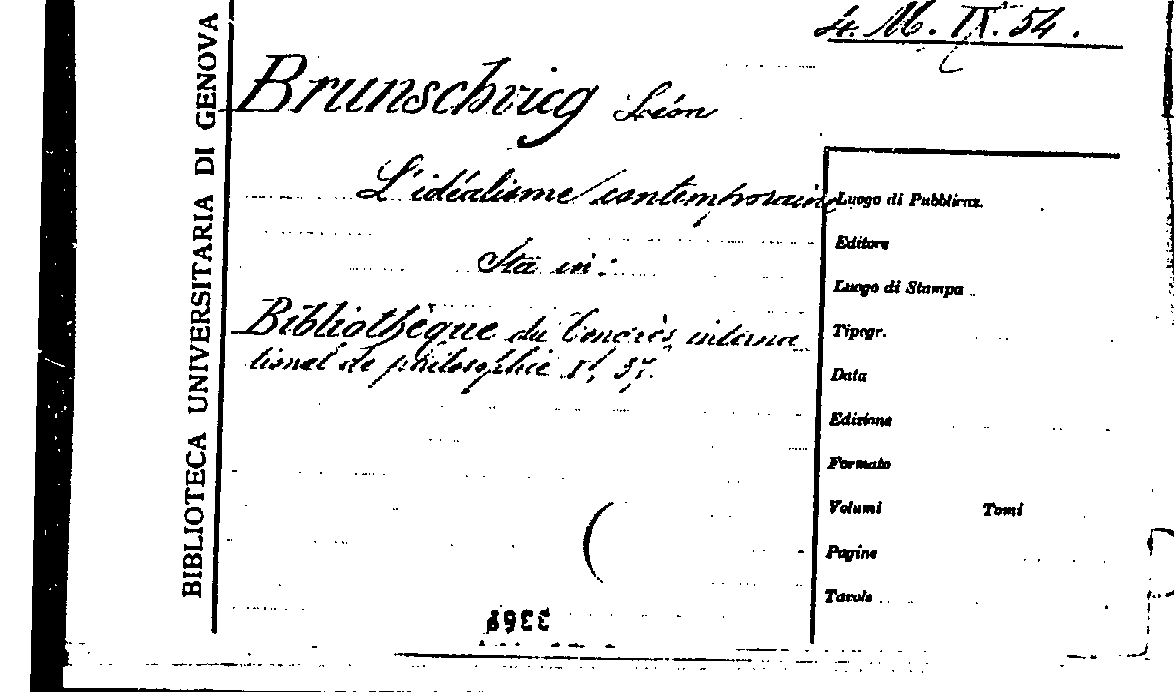 4. M. IX. 54.
BIBLIOTECA UNIVERSITARIA DI GENOVA
Brunschvicg Léon
L'idéalisme contemporaine
Sta in:
Bibliothèque du Congrès interna
tional de philosophie I, 37.
Luogo di Pubblicaz.
Editore
Luogo di Stampa
Tipogr.
Data
Edizione
Formato
Volumi Tomi
Pagine
Tavole